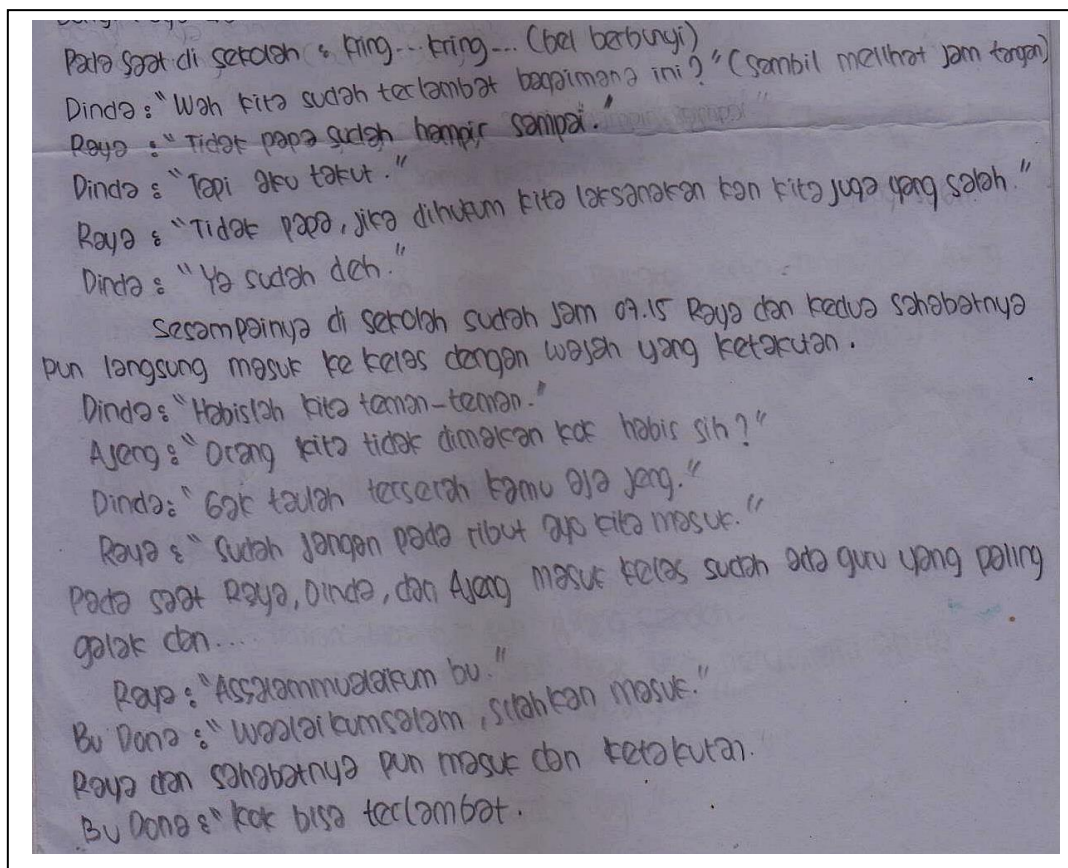 Pada saat di sekolah : kring... kring... (bel berbunyi)
Dinda : "Wah kita sudah terlambat bagaimana ini?" (sambil melihat jam tangan)
Raya : "Tidak papa sudah hampir sampai."
Dinda : "Tapi aku takut."
Raya : "Tidak papa, jika dihukum kita laksanakan kan kita juga yang salah."
Dinda : "Ya sudah deh."
Sesampainya di sekolah sudah jam 07.15 Raya dan kedua sahabatnya
pun langsung masuk ke kelas dengan wajah yang ketakutan.
Dinda : "Habislah kita teman-teman."
Ajeng : "Orang kita tidak dimakan kok habis sih?"
Dinda : "Gak taulah terserah kamu aja jeng."
Raya : "Sudah jangan pada ribut ayo kita masuk."
Pada saat Raya, Dinda, dan Ajeng masuk kelas sudah ada guru yang paling
galak dan...
Raya : "Assalammualaikum bu."
Bu Dona : "Waalaikumsalam, silahkan masuk."
Raya dan sahabatnya pun masuk dan ketakutan.
Bu Dona : "kok bisa terlambat.